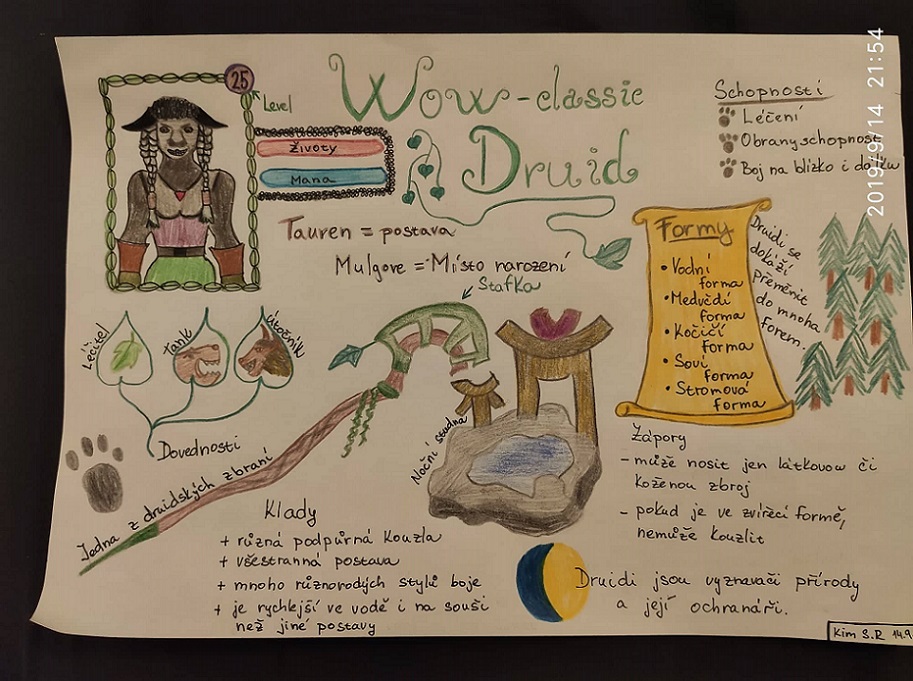 Wow-classic
Druid
25
Level
Životy
Mana
Tauren = postava
Mulgore = Místo narození
Schopnosti
Léčení
Obrany schopnost
Boj na blízko i dálku
2019/9/14 21:54
Formy
• Vodní
forma
• Medvědí
forma
• Kočičí
forma
• Soví
forma
• Stromová
forma
Druidi se
dokáží
přeměnit
do mnoha
forem.
Léčitel
Tank
útočník
Dovednosti
Stafka
Jedna z druidských zbraní
Noční studna
Klady
+ různá podpůrná kouzla
+ všestranná postava
+ mnoho různorodých stylů boje
+ je rychlejší ve vodě i na souši
než jiné postavy
Zápory
- může nosit jen látkovou či
koženou zbroj
- pokud je ve zvířecí formě,
nemůže kouzlit
Druidi jsou vyznavači přírody
a její ochranáři.
Kim S.R 14.9